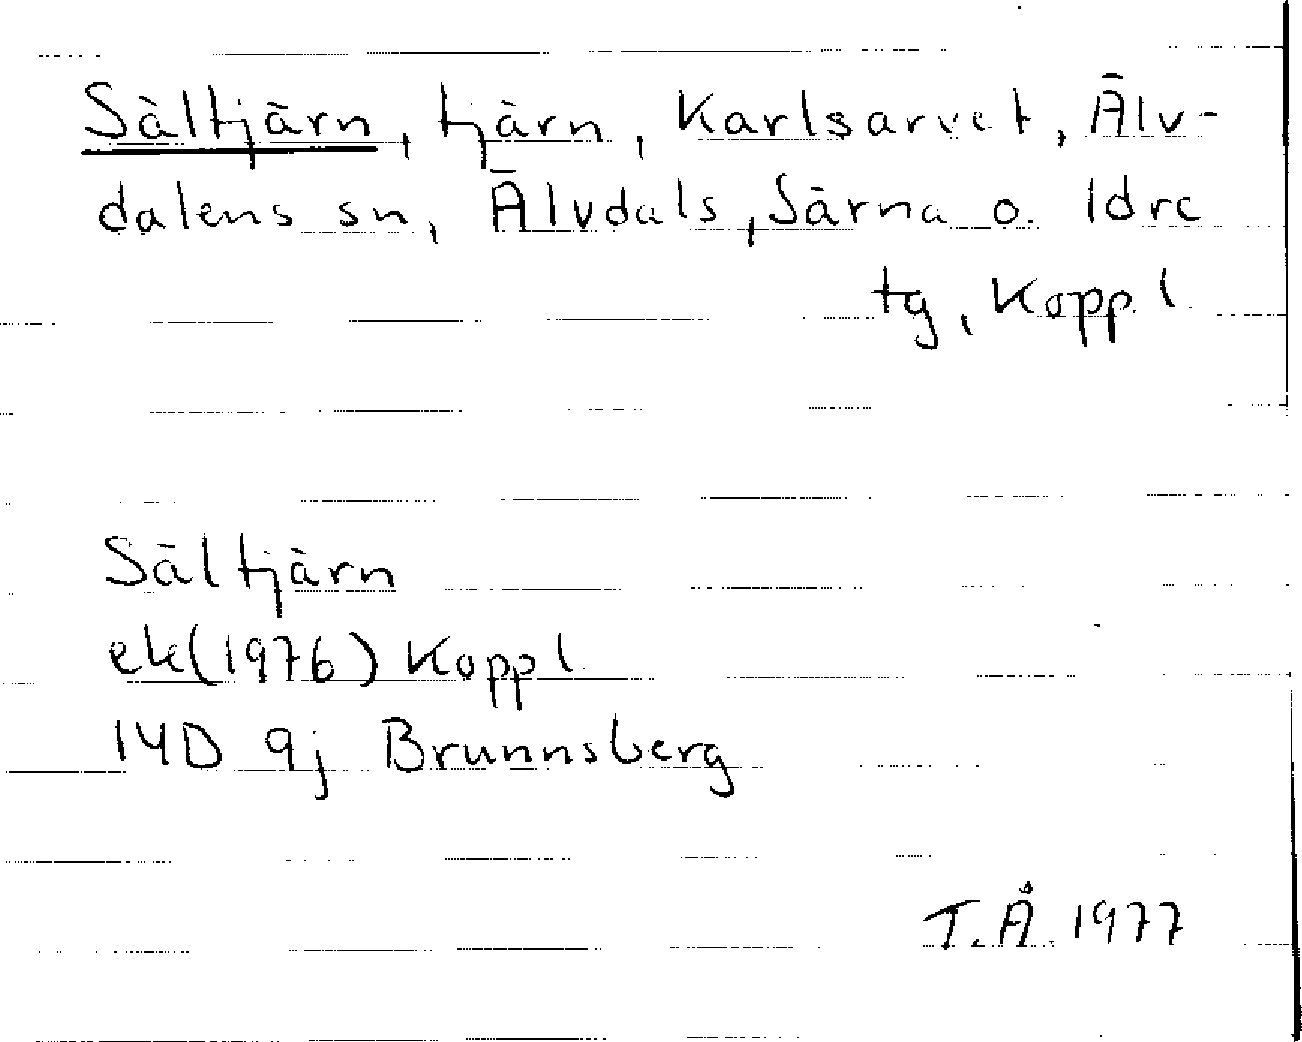 Sältjärn, tjärn, Karlsarvet, Älv-
dalens sn, Älvdals, Särna o. Idre
tg, Kopp l
Sältjärn
ek(1976) Kopp l
14D 9j Brunnsberg
T.Å. 1977